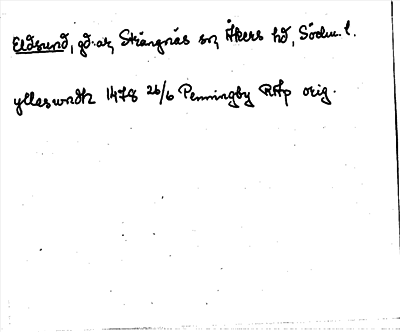 Eldsund, gd. ar, Strängnäs sn, Åkers hd, Södm. l.
ylleswndh 1478 26/6 Penningby RAp orig.